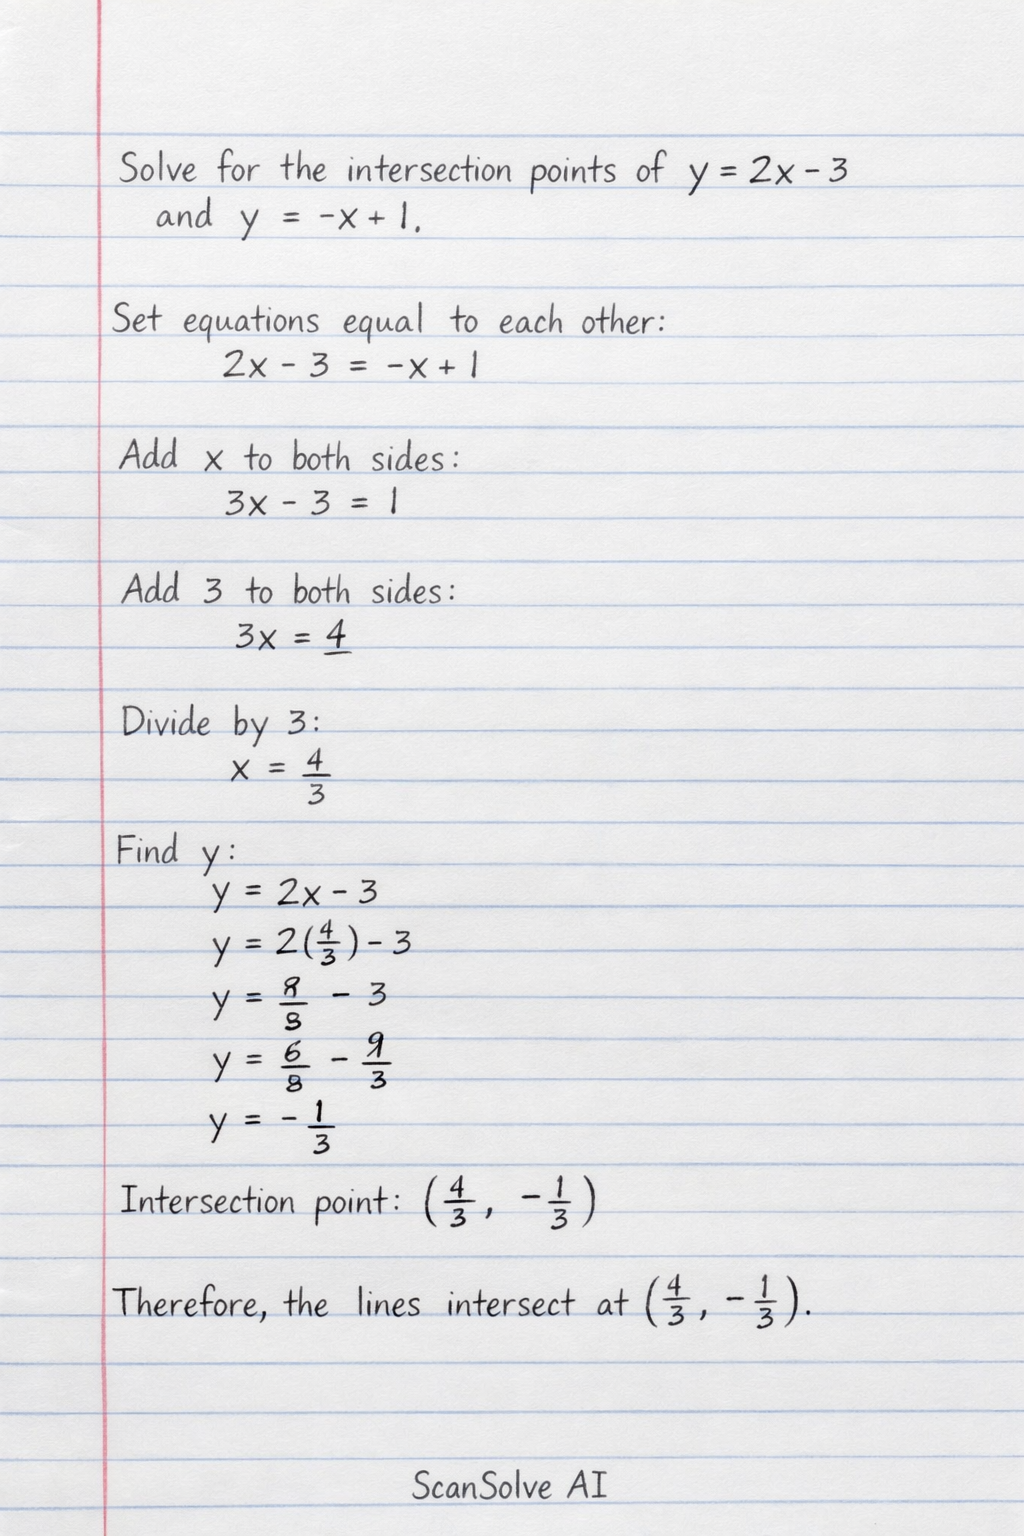 Solve for the intersection points of y = 2x - 3
and y = -x + 1.
Set equations equal to each other:
2x - 3 = -x + 1
Add x to both sides:
3x - 3 = 1
Add 3 to both sides:
3x = 4
Divide by 3:
x = 4/3
Find y:
y = 2x - 3
y = 2(4/3) - 3
y = 8/8 - 3
y = 6/8 - 9/3
y = - 1/3
Intersection point: (4/3, -1/3)
Therefore, the lines intersect at (4/3, -1/3).
ScanSolve AI